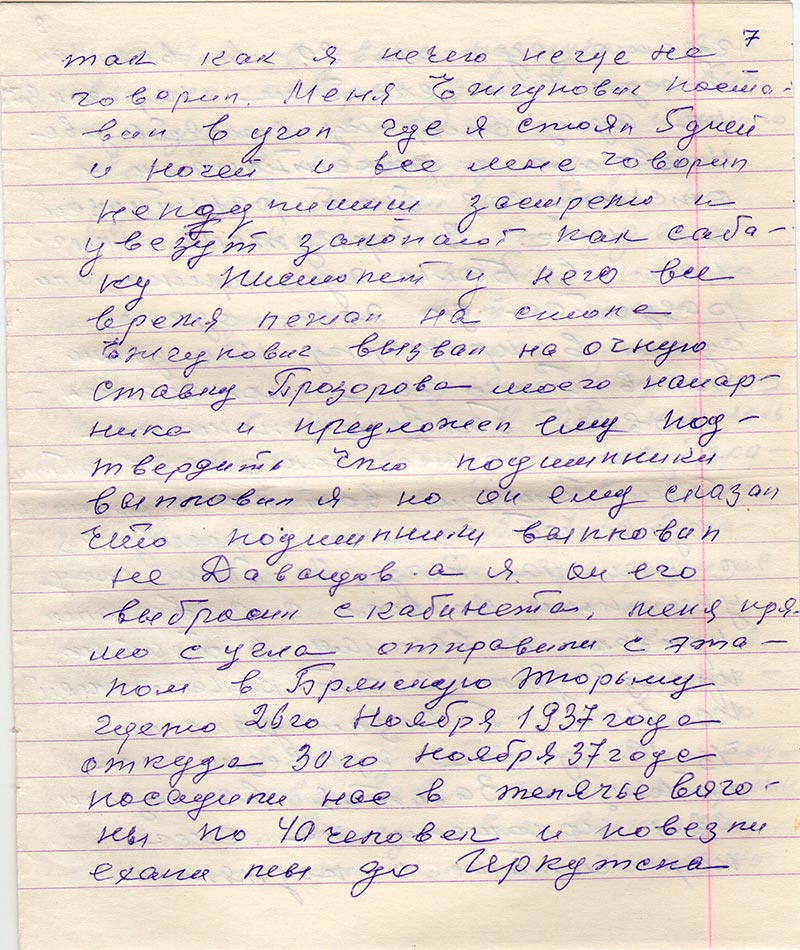 7
так как я нечего негде не
говорил. Меня Бжгунович поста-
вил в угол где я стоял 5 дней
и ночей и все мне говорил
неподпишиш застрелю и
увезут закопают как саба-
ку писталет у него все
время лежал на столе
Бжгунович вызвал на очную
ставку Прозорова моего напар-
ника и предложел ему под-
твердить что подшипники
выплавил я но он ему сказал
что подшипники выплавил
не Давыдов а я. он его
выбросил с кабинета, меня пря-
мо с угла отправили с эта-
пом в Брянскую тюрьму
гдето 26го Ноября 1937 года
откуда 30го ноября 37 года
посадили нас в телячье ваго-
ны по 40 человек и повезли
ехали мы до Иркутска